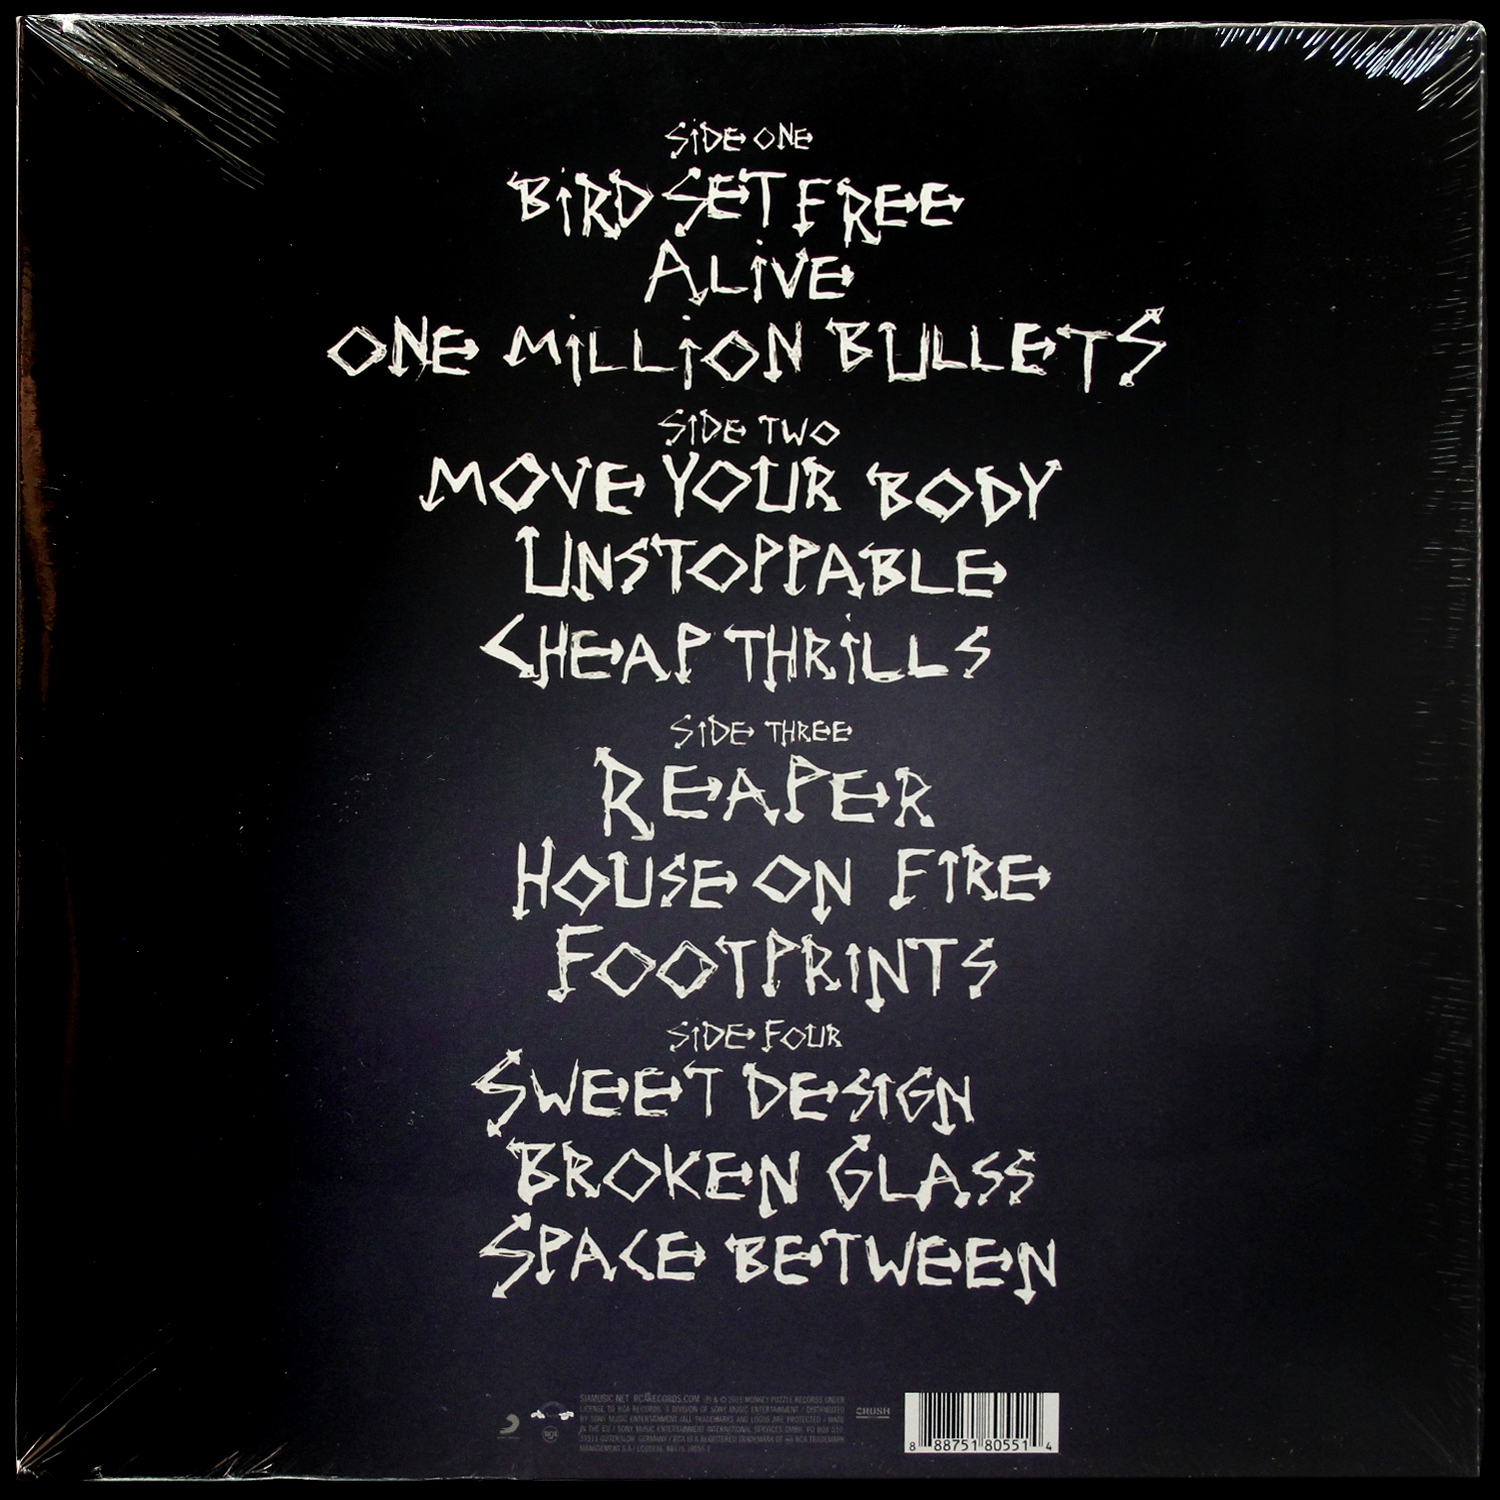 SIDE ONE
BIRD SET FREE
ALIVE
ONE MILLION BULLETS
SIDE TWO
MOVE YOUR BODY
UNSTOPPABLE
CHEAP THRILLS
SIDE THREE
REAPER
HOUSE ON FIRE
FOOTPRINTS
SIDE FOUR
SWEET DESIGN
BROKEN GLASS
SPACE BETWEEN
SIAMUSIC.NET RCARECORDS.COM MONKEY PUZZLE RECORDS UNDER
LICENSE TO RCA RECORDS, A DIVISION OF SONY MUSIC ENTERTAINMENT / DISTRIBUTED
BY SONY MUSIC ENTERTAINMENT /ALL TRADEMARKS AND LOGOS ARE PROTECTED / MADE
IN THE EU / SONY MUSIC ENTERTAINMENT INTERNATIONAL SERVICES GMBH, PO BOX 510
GERMANY / RCA IS A REGISTERED TRADEMARK OF RCA TRADEMARK
MANAGEMENT S.A /
CRUSH
8 88751 80551 4